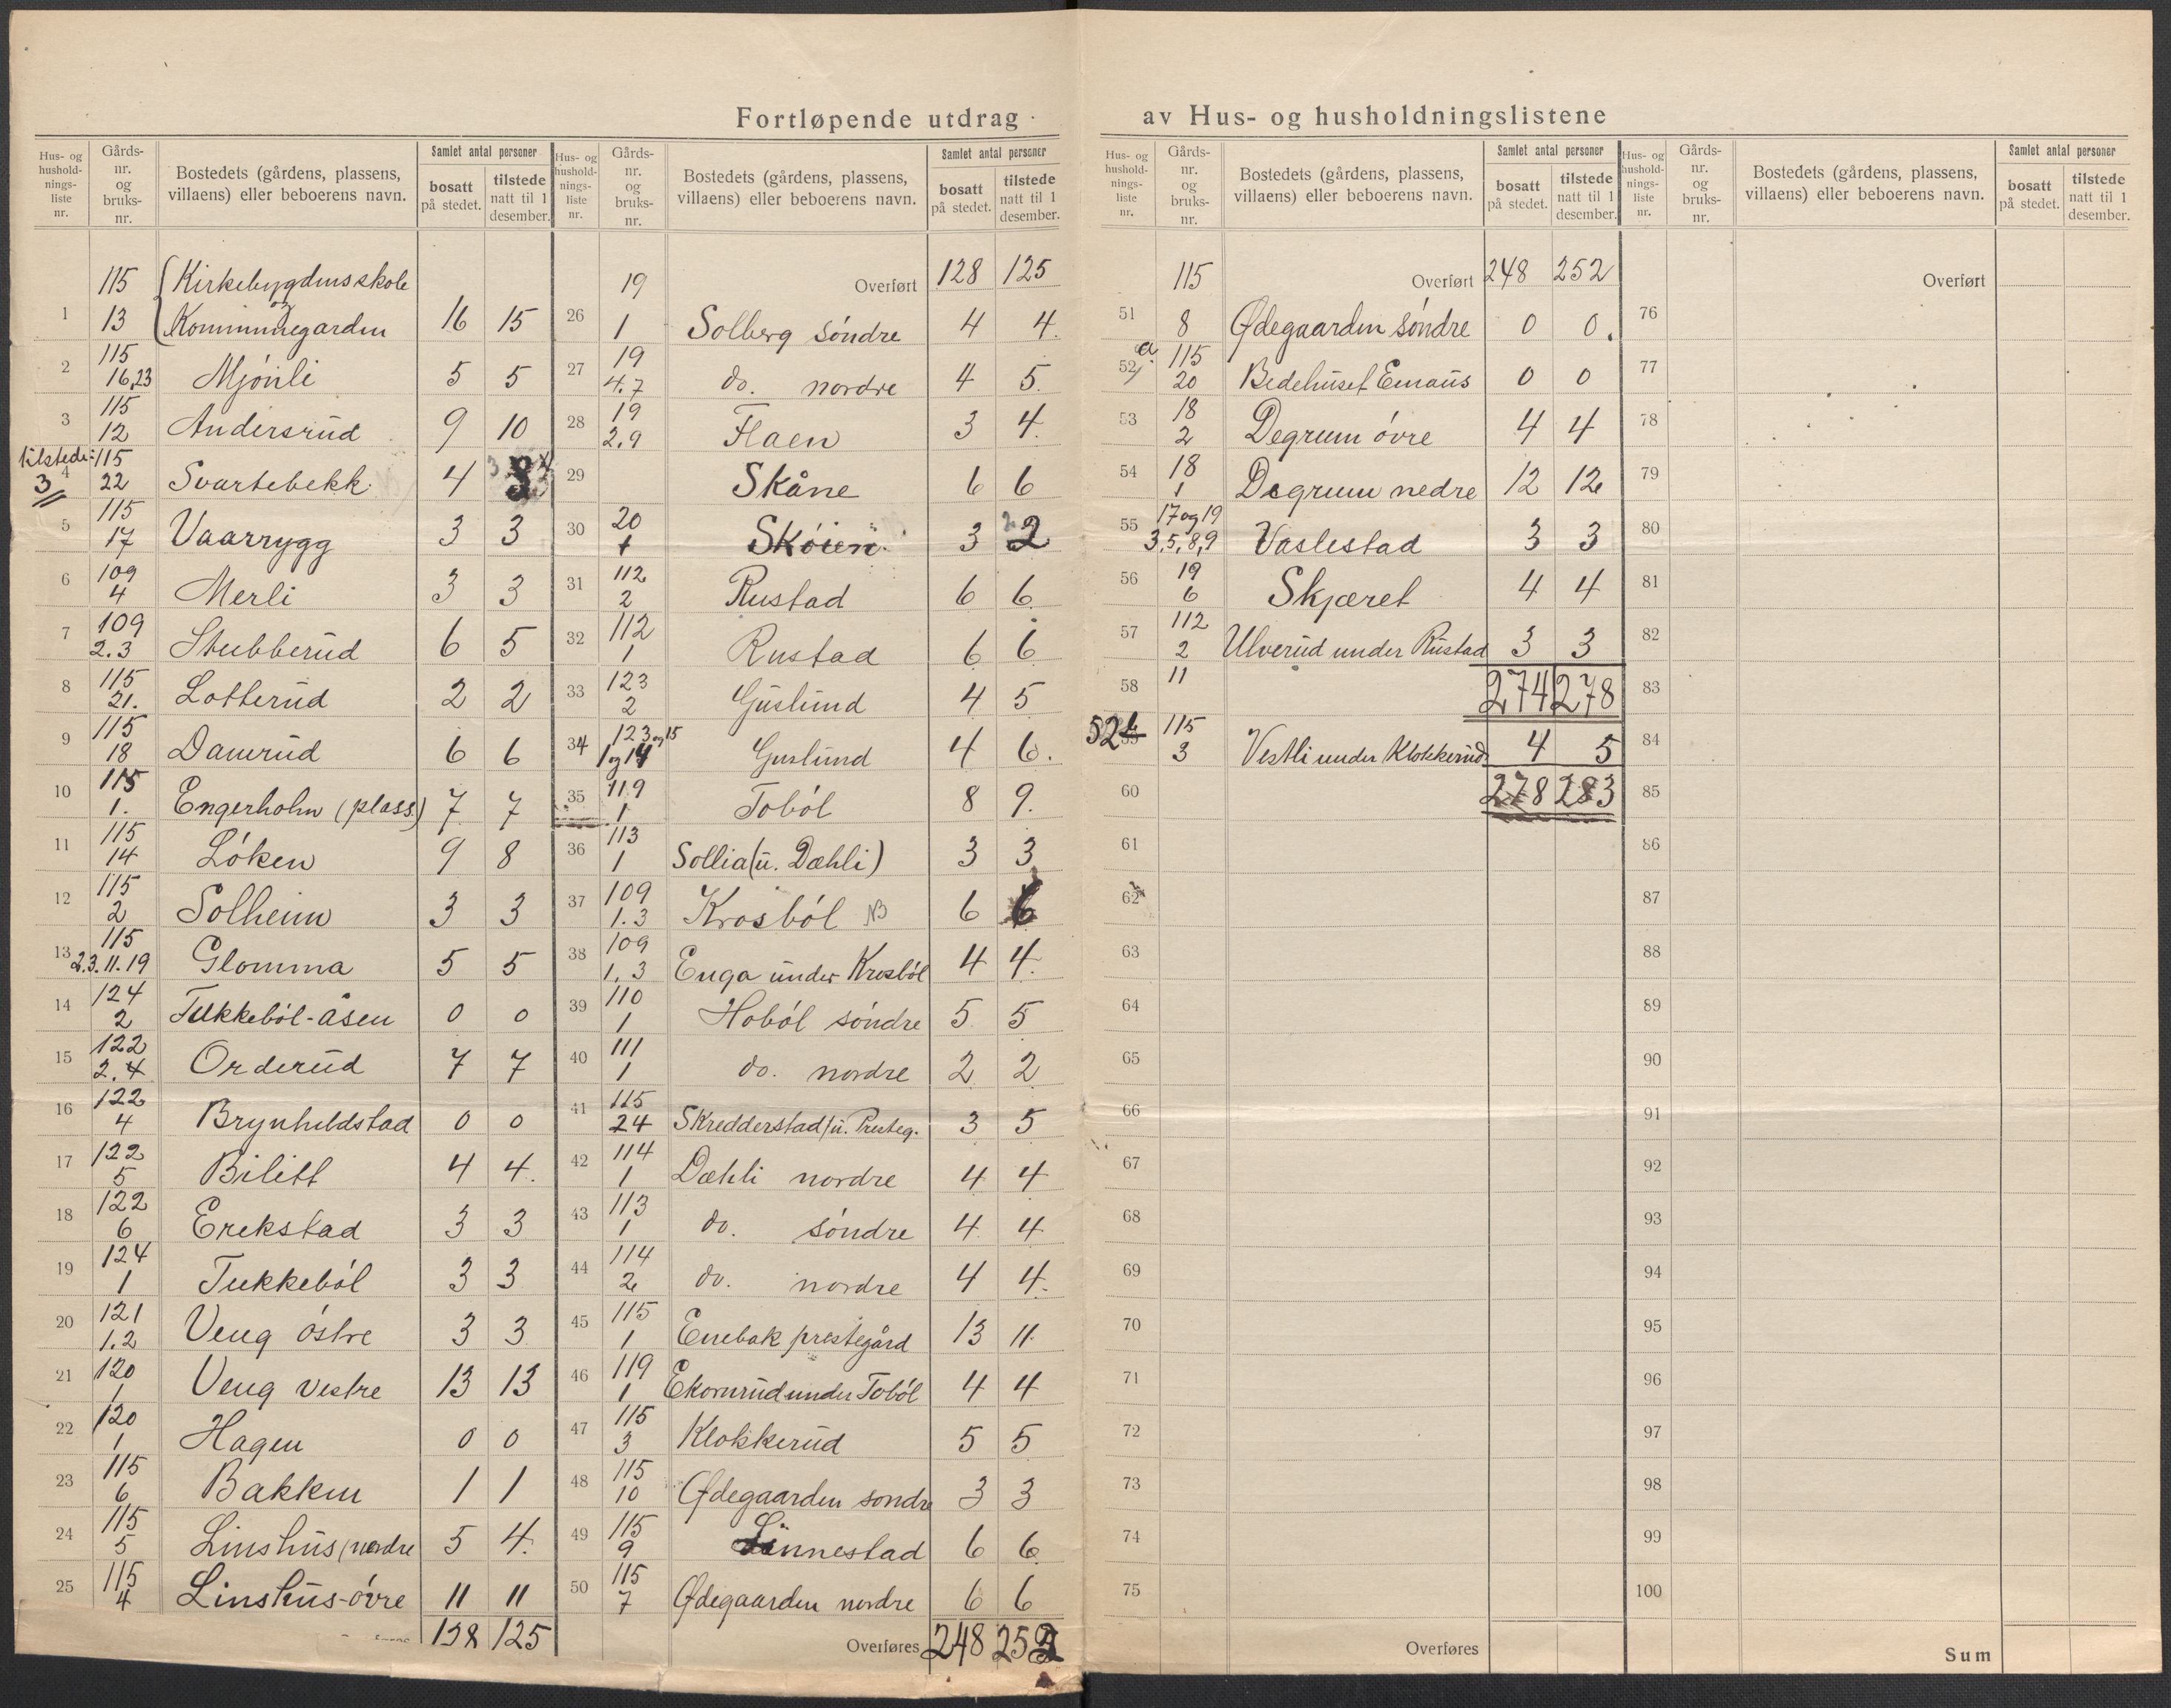 Fortløpende utdrag av Hus- og husholdningslistene
Hus- og husholdnings-liste nr. Gårds-nr. og bruks-nr. Bostedets (gårdens, plassens, villaens) eller beboerens navn. Samlet antal personer bosatt på stedet. tilstede natt til 1 desember.
115 Kirkebygdens skole
og
1 13 Kommunegarden 16 15
2 115 16,23 Mjönli 5 5
3 115 12 Andersrud 9 10
tilstede: 3
4 115 22 Svartebekk 4 3
5 115 17 Vaarrygg 3 3
6 109 4 Merli 3 3
7 109 2.3 Stubberud 6 5
8 115 21. Lotterud 2 2
9 115 18 Damrud 6 6
10 115 1. Engerholm (plass) 7 7
11 115 14 Löken 9 8
12 115 2 Solheim 3 3
13 115 2.3.11.19 Glomma 5 5
14 124 2 Tukkeböl-åsen 0 0
15 122 2.4 Orderud 7 7
16 122 4 Brynhildstad 0 0
17 122 5 Bilitt 4 4.
18 122 6 Erekstad 3 3
19 124 1 Tukkeböl 3 3
20 121 1.2 Veng östre 3 3
21 120 1 Veng vestre 13 13
22 120 1 Hagen 0 0
23 115 6 Bakken 1 1
24 115 5 Linshus (nordre 5 4.
25 115 4 Linshus-övre 11 11
128 125
Hus- og husholdnings-liste nr. Gårds-nr. og bruks-nr. Bostedets (gårdens, plassens, villaens) eller beboerens navn. Samlet antal personer bosatt på stedet. tilstede natt til 1 desember.
Overført 128 125
26 19 1 Solberg söndre 4 4.
27 19 4.7 do. nordre 4 5.
28 19 2,9 Flaen 3 4.
29 Skåne 6 6
30 20 1 Sköien 3 2
31 112 2 Rustad 6 6
32 112 1 Rustad 6 6
33 123 2 Guslund 4 5
34 123 og 15 1 og 14 Guslund 4 6.
35 119 1 Toböl 8 9.
36 113 1 Sollia (u. Dæhli) 3 3
37 109 1.3 Krosböl NB 6 6
38 109 1,3 Enga under Krosböl 4 4.
39 110 1 Hoböl söndre 5 5
40 111 1 do. nordre 2 2
41 115 24 Skredderstad/u. Presteg. 3 5
42 114 1 Dæhli nordre 4 4
43 113 1 do. söndre 4 4
44 114 2 do. nordre 4 4.
45 115 1 Enebak prestegård 13 11
46 119 1 Ekornrud under Toböl 4 4
47 115 3 Klokkerud 5 5
48 115 10 Ødegaarden sondre 3 3
49 115 9 Linnestad 6 6
50 115 7 Ødegaarden nordre 6 6
Overføres 248 252
Hus- og husholdnings-liste nr. Gårds-nr. og bruks-nr. Bostedets (gårdens, plassens, villaens) eller beboerens navn. Samlet antal personer bosatt på stedet. tilstede natt til 1 desember.
Overført 248 252
51 115 8 Ødegaarden söndre 0 0.
52 a 115 20 Bedehuset Emaus 0 0
53 18 2 Degrum övre 4 4
54 18 1 Degrum nedre 12 12
55 17 og 19 3,5,8,9 Vaslestad 3 3
56 19 6 Skjæret 4 4
57 112 2 Ulverud under Rustad 3 3
58 11 274 278
52 b 115 3 Vestli under Klokkerud 4 5
60 278 283
61
62
63
64
65
66
67
68
69
70
71
72
73
74
75
Overføres
Hus- og husholdnings-liste nr. Gårds-nr. og bruks-nr. Bostedets (gårdens, plassens, villaens) eller beboerens navn. Samlet antal personer bosatt på stedet. tilstede natt til 1 desember.
Overført
76
77
78
79
80
81
82
83
84
85
86
87
88
89
90
91
92
93
94
95
96
97
98
99
100
Sum